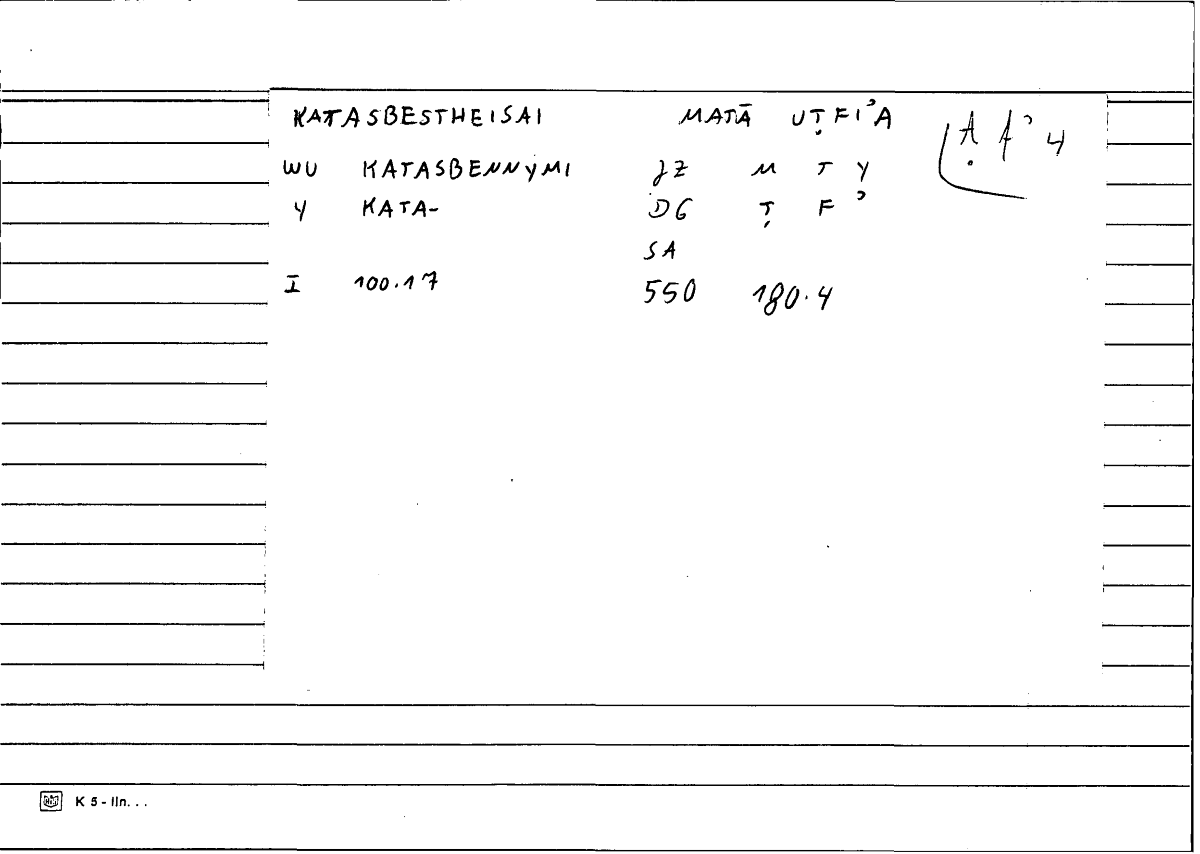 KATASBESTHEISAI MATĀ UṬFIʾA
WU KATASBENNYMI JZ M T Y
4 KATA- DG Ṭ F ʾ
SA
I 100.17 550 180.4
K 5 - lln. . .